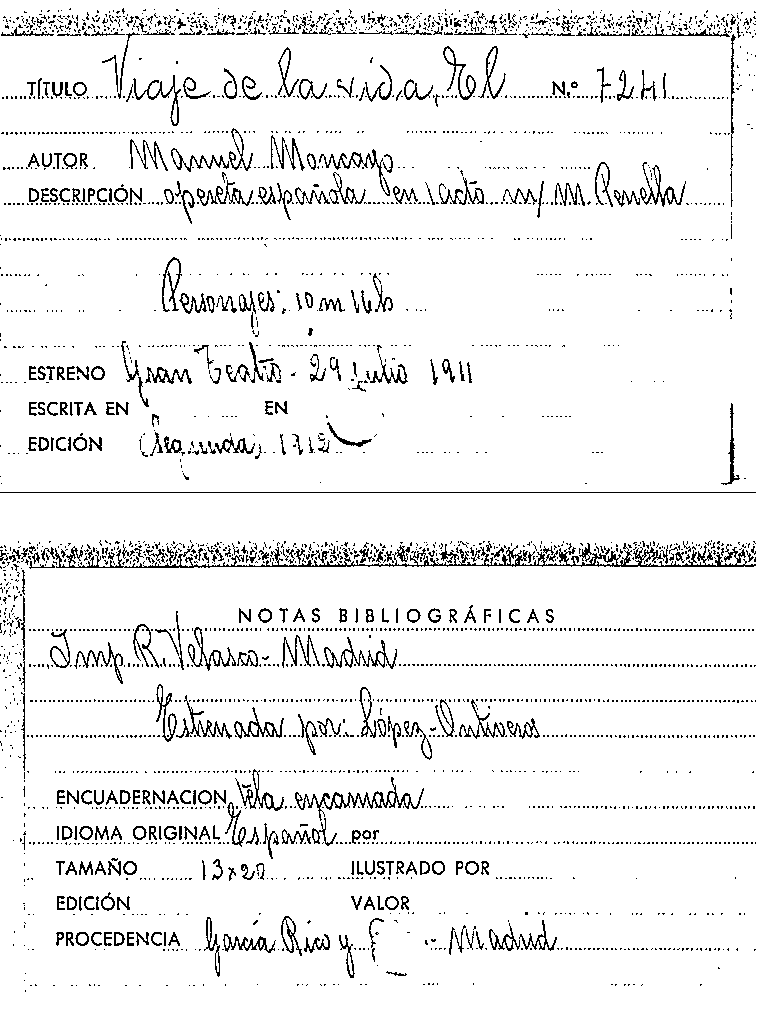 TÍTULO Viaje de la vida, El N.º 7241
AUTOR Manuel Moncayo
DESCRIPCIÓN opereta española en 1 acto m/ M. Penella
Personajes: 10 m 16 h
ESTRENO Gran Teatro - 29 julio 1911
ESCRITA EN EN
EDICIÓN (Segunda) 1912
NOTAS BIBLIOGRÁFICAS
Imp. R. Velasco - Madrid
Estrenada por: López-Ontiveros
ENCUADERNACION Tela encarnada
IDIOMA ORIGINAL Español por
TAMAÑO 13x20 ILUSTRADO POR
EDICIÓN VALOR
PROCEDENCIA García Rico y - Madrid